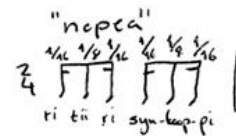 "nopea"
1/16 1/8 1/16 1/16 1/8 1/16
2
4
ri tii ri syn-koop-pi